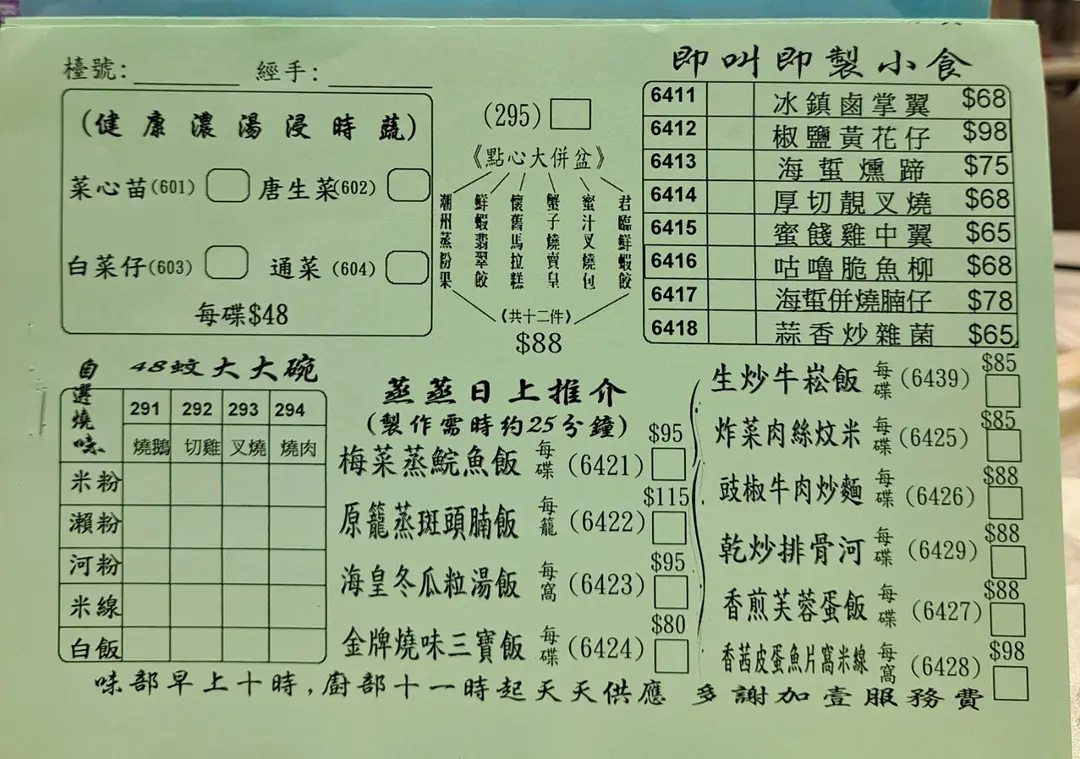 檯號：
經手：
(健康濃湯浸時蔬)
菜心苗(601)
唐生菜(602)
白菜仔(603)
通菜(604)
每碟$48
(295)
《點心大併盆》
潮州蒸粉果
鮮蝦翡翠餃
懷舊馬拉糕
蟹子燒賣皇
蜜汁叉燒包
君臨鮮蝦餃
《共十二件》
$88
即叫即製小食
6411 冰鎮鹵掌翼 $68
6412 椒鹽黃花仔 $98
6413 海蜇燻蹄 $75
6414 厚切靚叉燒 $68
6415 蜜餞雞中翼 $65
6416 咕嚕脆魚柳 $68
6417 海蜇併燒腩仔 $78
6418 蒜香炒雜菌 $65
自選燒味
48蚊大大碗
291 292 293 294
燒鵝 切雞 叉燒 燒肉
米粉
瀨粉
河粉
米線
白飯
蒸蒸日上推介
(製作需時約25分鐘)
梅菜蒸鯇魚飯 每碟 (6421) $95
原籠蒸斑頭腩飯 每籠 (6422) $115
海皇冬瓜粒湯飯 每窩 (6423) $95
金牌燒味三寶飯 每碟 (6424) $80
生炒牛崧飯 每碟 (6439) $85
炸菜肉絲炆米 每碟 (6425) $85
豉椒牛肉炒麵 每碟 (6426) $88
乾炒排骨河 每碟 (6429) $88
香煎芙蓉蛋飯 每碟 (6427) $88
香茜皮蛋魚片窩米線 每窩 (6428) $98
味部早上十時，廚部十一時起天天供應 多謝加壹服務費